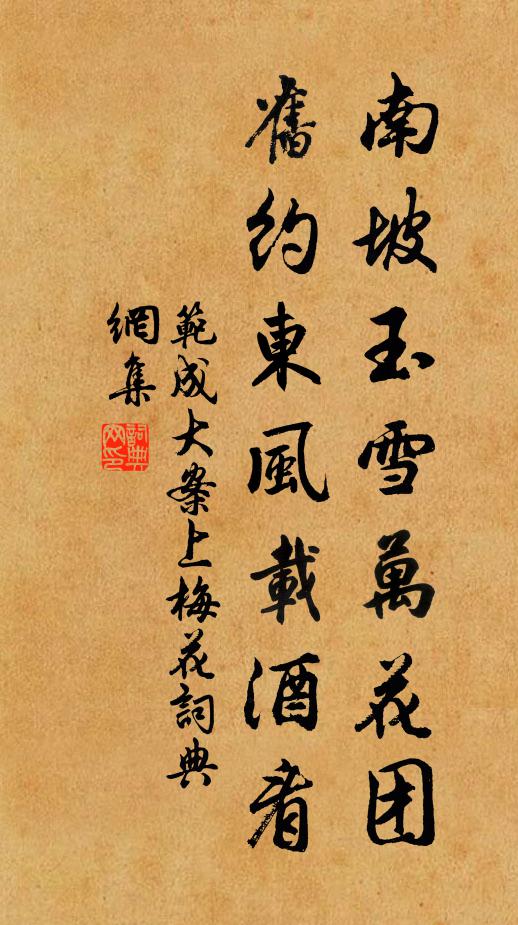 南坡玉雪萬花团
舊約東風載酒看
範成大案上梅花詞典
網集
詞典网印